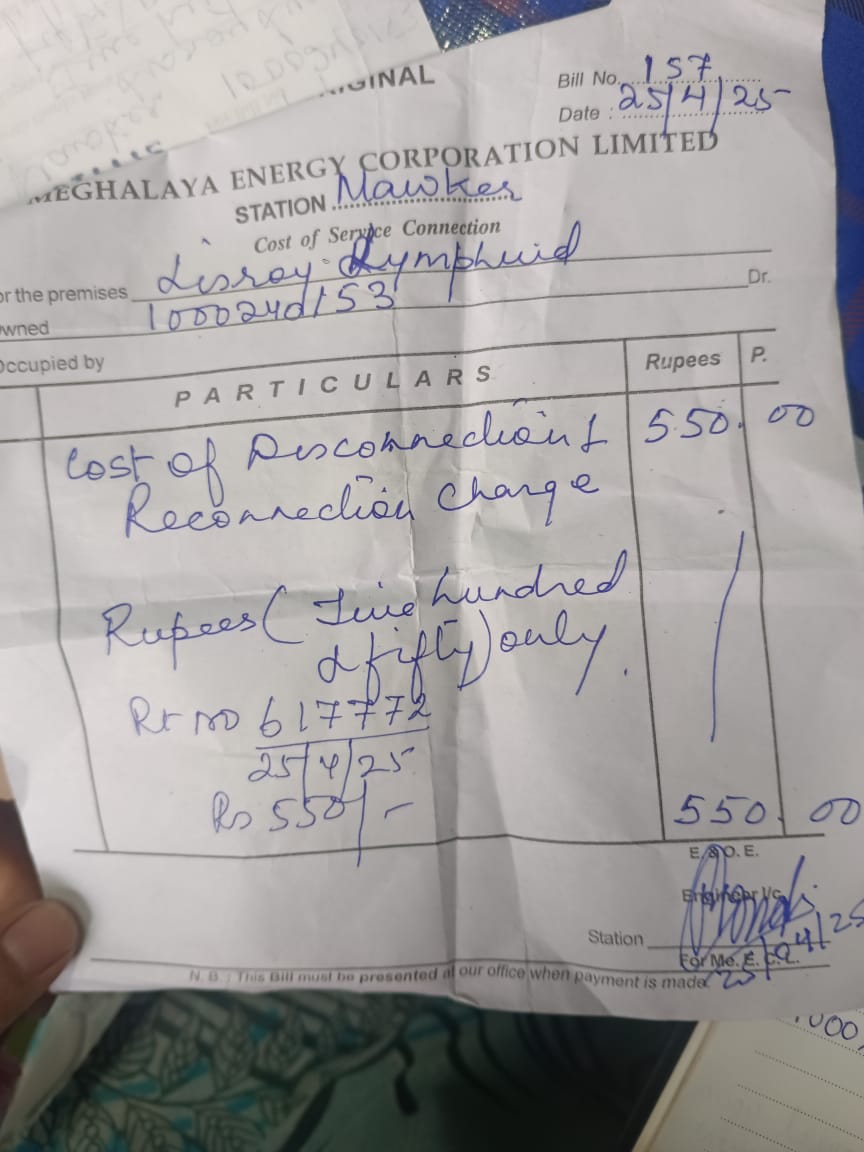 ORIGINAL
Bill No. 157
Date : 25/4/25
MEGHALAYA ENERGY CORPORATION LIMITED
STATION Mawker
Cost of Service Connection
or the premises Lisroy Rymphuid
wned 1000240153
Dr.
Occupied by
PARTICULARS Rupees P.
Cost of Disconnection & 550. 00
Reconnection Charge
Rupees ( Five hundred
& fifty) only.
Rt no 617772
25/4/25
Rs 550/-
550. 00
E. & O. E.
Engineer I/c
Station
For Me. E. C. L.
25/04/25
N. B. : This Bill must be presented at our office when payment is made.